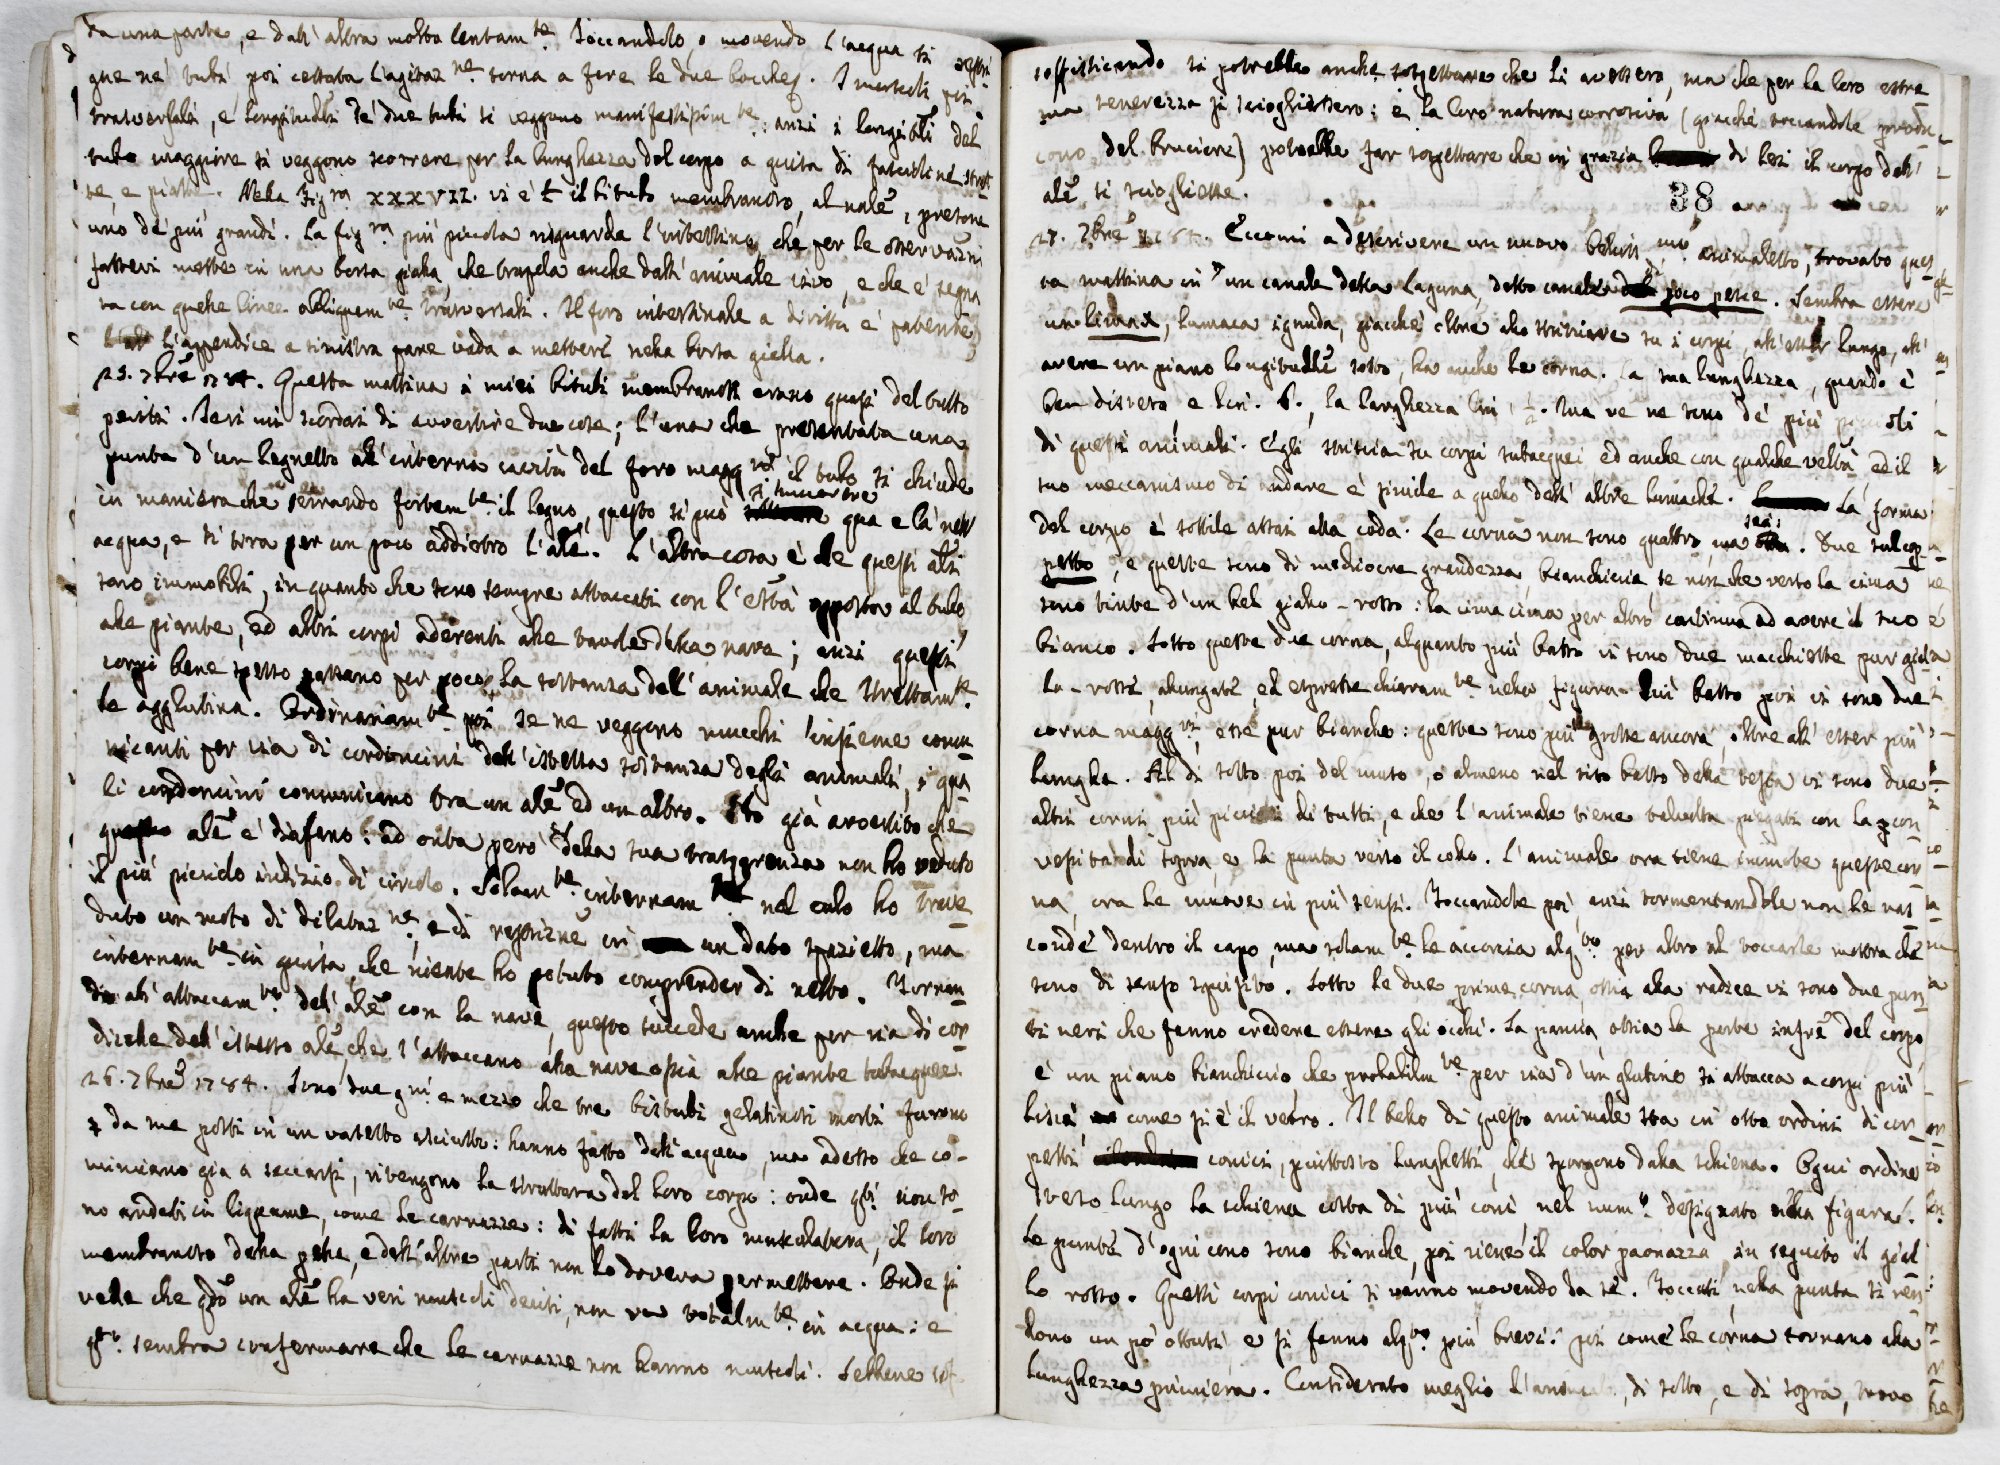 da una parte, e dall'altra molto lentam.te Toccandolo, o movendo l'acqua si
gue ne' tubi poi cessata l'agitaz.ne torna a fare le due bocche. I muscoli
trasversali, e longitudli de' due tubi si veggono manifestissim.te: anzi i longitli del
tubo maggiore si veggono scorrere per la lunghezza del corpo a guisa di fascicoli
te, e piatti. Nella Fig.ra XXXVII. vi è il bitubo membranoso, al nale, presone
uno de' più grandi. La fig.ra più piccola riguarda l'intestino, che per le osservazni
fattevi mette in una borsa gialla, che trapela anche dall'animale vivo, e che è segna
ta con quelle linee obliquam.te trasversali. Il foro intestinale a diritta è patente,
l'appendice a sinistra pare vada a mettere nella borsa gialla.
25. 7bre 1784. Questa mattina i miei bitubi membranosi erano quasi del tutto
periti. Ieri mi scordai di avvertire due cose; l'una che presentata una
punta d'un legnetto all'interna cavità del foro magg.re il tubo si chiude
in maniera che serrando fortem.te il legno, questo si può si muovere qua e là nell'
acqua, e si tira per un poco addietro l'ale. L'altra cosa è che questi ali
sono immobili, in quanto che sono sempre attaccati con l'està opposta al tubo
alle piante, ed altri corpi aderenti alle tavole della nave; anzi questi
corpi bene spesso passano per poco la sostanza dell'animale che strettam.te
le agglutina. Ordinariam.te poi se ne veggono mucchi insieme comu
nicanti per via di cordoncini dell'istessa sostanza degli animali, i qua
li cordoncini comunicano tra un ale ed un altro. Ho già avvertito che
questo ale è diafano: ad onta però della sua trasparenza non ho veduto
il più picciolo indizio di circolo. Solam.te internam.te nel culo ho trave
duto un moto di dilataz.ne, e di respizne in un dato spazietto, ma
internam.te in guisa, che niente ho potuto comprender di netto. Tornan
do all'attaccam.to dell'ale con la nave, questo succede anche per via di cor
dicelle dell'istesso ale, che s'attaccano alla nave ossia alle piante subacquee.
26. 7bre 1784. Sono due gni e mezzo che tre bitubi gelatinosi morti furono
da me posti in un vasetto asciutto: hanno fatto dell'acqua, ma adesso che co-
minciano già a seccarsi, ritengono la struttura del loro corpo: onde qti non so
no andati in liquame, come le carnazze: di fatti la loro muscolatura, il loro
membranoso della pelle, e dell'altre parti non lo doveva permettere. Onde si
vede che qdo un ale ha veri muscoli decisi, non va totalm.te in acqua: e
q.to sembra confermare che le carnazze non hanno muscoli. Sebbene sof
soffisticando si potrebbe anche soggettare che li avessero, ma che per la loro estre
ma tenerezza si sciogliessero: e la loro natura corrosiva (giacchè toccandole produ
cono del bruciore) potrebbe far soggettare che in grazia di lesi il corpo dell'
ale si sciogliesse.
38
27. 7bre 1784. Eccomi a descrivere un nuovo bellissi.mo animaletto, trovato ques
ta mattina in un canale della Laguna, detto canale poco pesce. Sembra essere
un limax, lumaca ignuda, giacchè oltre allo strisciare su i corpi, all'esser lungo, all'
avere un piano longitudle sotto, ha anche le corna. La sua lunghezza, quando è
ben disteso e lin. 6., la larghezza lin. 1/2. Ma ve ne sono de' più piccioli
di questi animali. Egli striscia su corpi subacquei ed anche con qualche veltà, ed il
suo meccanismo di andare è simile a quello dell'altre lumache. La forma
del corpo è sottile assai alla coda. Le corna non sono quattro, ma sei. Due sul cap
petto, e queste sono di mediocre grandezza bianchiccie, se non che verso la cima
sono tinte d'un bel giallo-rosso: la cima cima per altro continua ad avere il suo
bianco. Sotto queste due corna, alquanto più basso vi sono due macchiette pur gial
lo-rosse, allungate, ed espresse chiaram.te nella figura. Più basso poi vi sono due
corna magg.ri, esse pur bianche: queste sono più grosse ancora, oltre all'esser più
lunghe. Al di sotto poi del muso, o almeno nel sito basso della testa vi sono due
altri corni più piccioli di tutti, e che l'animale tiene talvolta piegati con la con
vessità di sopra e la punta verso il collo. L'animale ora tiene immote queste cor
na, ora le muove in più sensi. Toccandole poi, anzi tormentandole non le nas
conde dentro il capo, ma solam.te le accorcia alq.to per altro al toccarle mostra che
sono di senso squisito. Sotto le due prime corna, ossia alla radice vi sono due pun
ti neri che fanno credere essere gli occhi. La pancia, ossia la parte infre del corpo
è un piano bianchiccio che probabilm.te per via d'un glutine si attacca a corpi più
lisci come si è il vetro. Il bello di questo animale sta in otto ordini di cor
petti conici, piuttosto lunghetti, che sporgono dalla schiena. Ogni ordine
verso lungo la schiena costa di più coni nel num.o designato nella figura.
Le punte d'ogni cono sono bianche, poi viene il color paonazzo, in seguito il gial
lo rosso. Questi corpi conici si vanno movendo da sè. Toccati nella punta si ren
dono un pò ottusi e si fanno alq.to più brevi: poi come le corna tornano alla
lunghezza primiera. Considerato meglio l'animale, di sotto, e di sopra, trovo